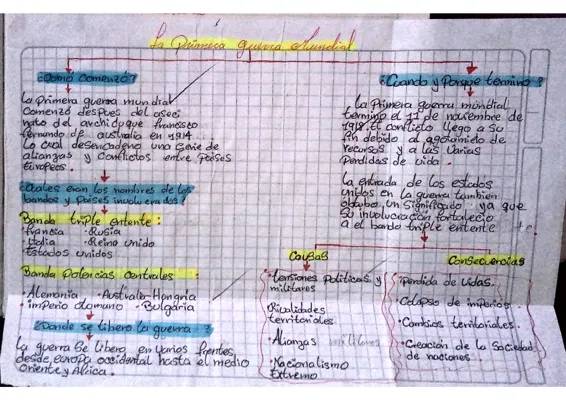 La Primera guerra Mundial
¿Como comenzó?
La primera guerra mundial
comenzó despues del asesi
nato del archiduque francesco
fernando de australia en 1914
Lo cual desencadeno una serie de
alianzas y conflictos entre países
Europeos.
¿Cuales eran los nombres de los
bandos y Países involucrados?
Banda triple entente:
francia · Rusia
· Italia · Reino unido
Estados unidos
Banda Potencias centrales
· Alemania · Australia-Hungria
· imperio otomano · Bulgaria
¿Donde se libero la guerra?
La guerra se libero en varios frentes,
desde europa occidental hasta el medio
oriente y Africa.
¿Cuando y Porque termino?
La Primera guerra mundial
termino el 11 de noviembre de
1918. El conflicto llego a su
fin debido al agotamiento de
recursos y a las varias
Perdidas de vida.
La entrada de los estados
unidos en la guerra tambien
un significado ya que
su involucración fortalecio
a el bando triple entente
Causas
· tensiones politicas y
militares
· Rivalidades
territoriales.
· Alianzas militares
· Nacionalismo
Extremo
Consecuencias
· Perdida de vidas.
· Colapso de imperios.
· Cambios territoriales.
· Creación de la Sociedad
de naciones.